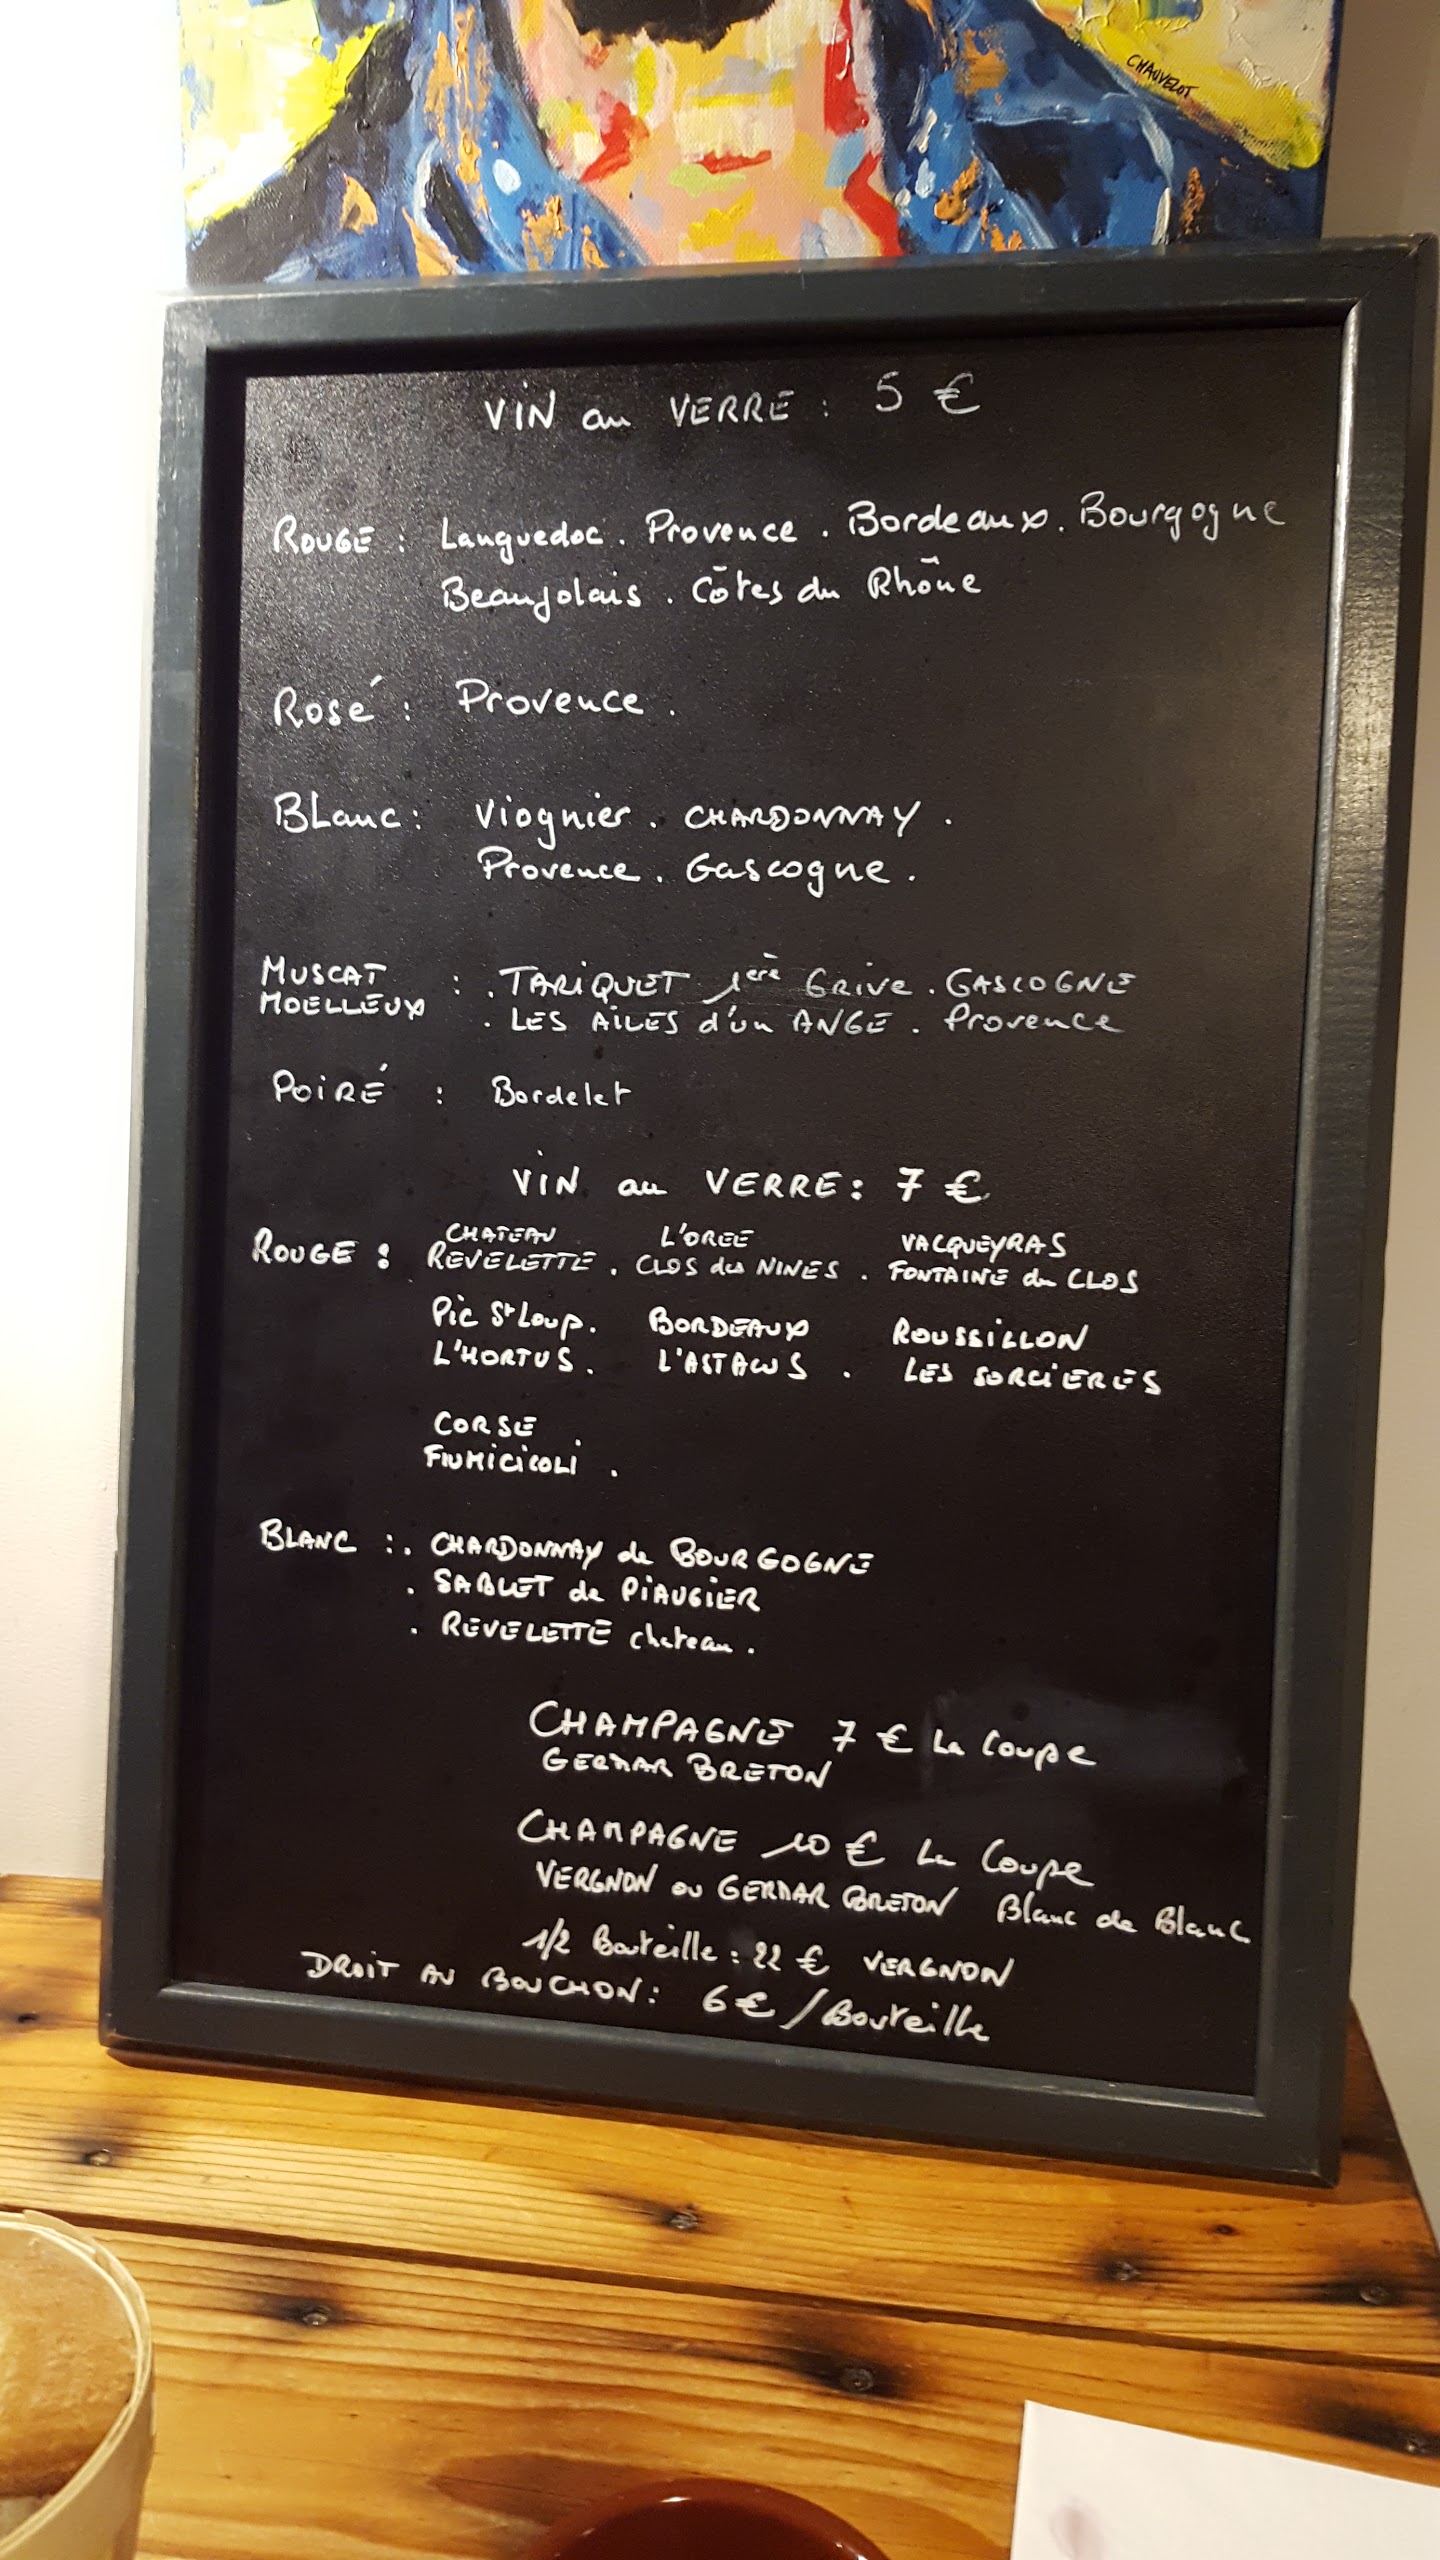 CHAUVELOT
VIN au VERRE : 5 €
ROUGE : Languedoc . Provence . Bordeaux . Bourgogne
Beaujolais . Côtes du Rhône
Rosé : Provence .
BLanc : Viognier . CHARDONNAY .
Provence . Gascogne .
MUSCAT
MOELLEUX : . TARIQUET 1ère Grive . GASCOGNE
. LES AILES d'un ANGE . Provence
POIRÉ : Bordelet
VIN au VERRE : 7 €
ROUGE : CHATEAU L'OREE VACQUEYRAS
REVELETTE . CLOS des NINES . FONTAINE du CLOS
Pic St Loup . BORDEAUX ROUSSILLON
L'HORTUS . . LES SORCIERES
CORSE .
FIUMICICOLI .
BLANC : . CHARDONNAY de BOURGOGNE
. SABLET de PIAUGIER
. REVELETTE chateau .
CHAMPAGNE 7 € La Coupe
BRETON
CHAMPAGNE 10 € La Coupe
VERGNON ou BRETON Blanc de Blanc
1/2 Bouteille : 22 € VERGNON
DROIT AU BOUCHON : 6 € / Bouteille